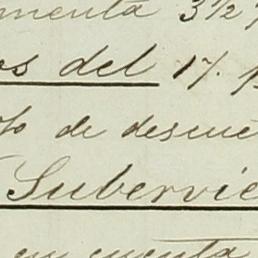 menta 312
os del 17.
to de descue
Subervie
en cuenta